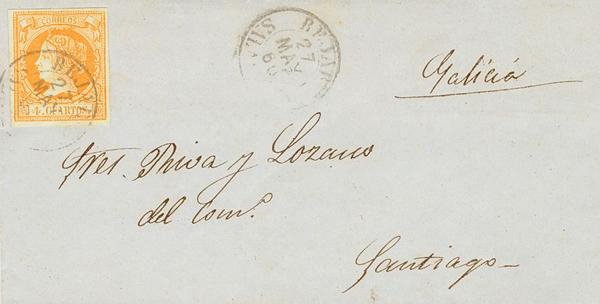 CORREOS
4 CUARTOS
BEJAR
27
MAY
60
Galicia
Sres. Riva y Lozano
del Com.º
Santiago